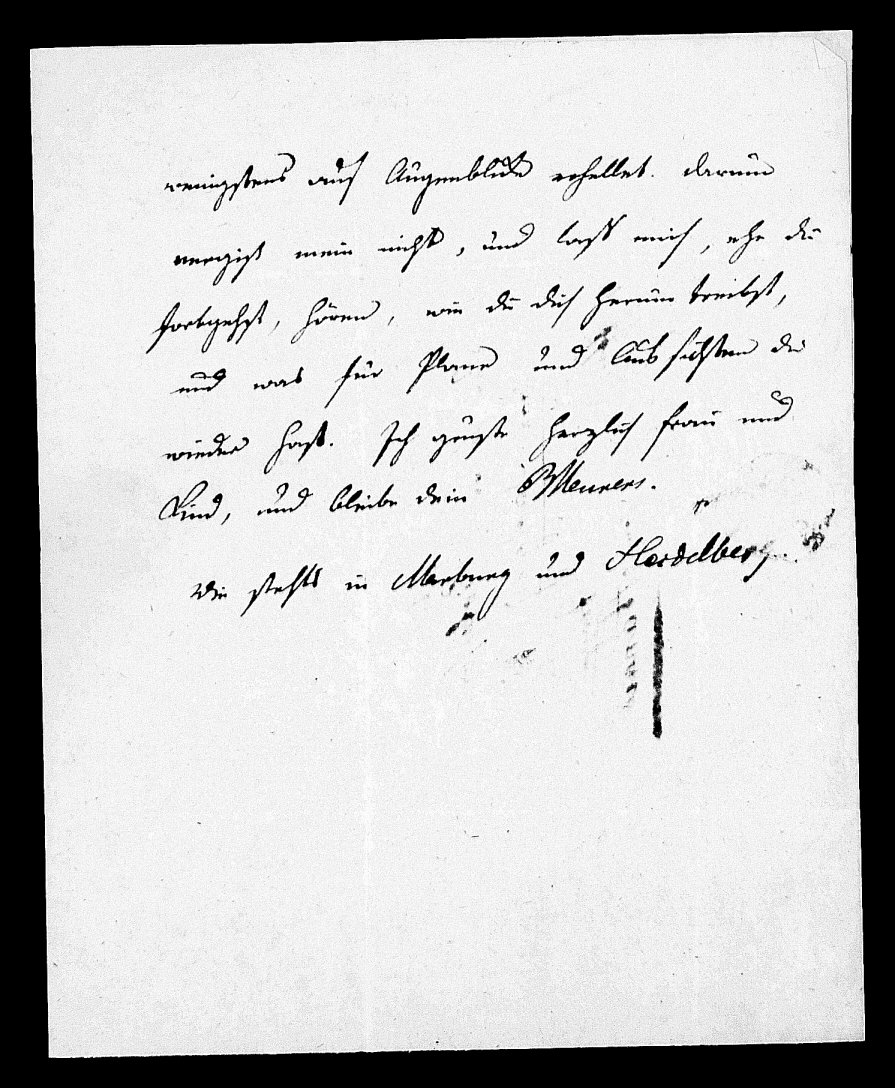 wenigstens auf Augenblicke erhellet. darum
vergiß mein nicht, und laß mich, ehe du
fortgehst, hören, wie du dich herum treibst,
und was für Plane und Aussichten du
wieder hast. Ich grüße herzlich Frau und
Kind, und bleibe dein Meurers.
Wie stehts in Marburg und Heidelberg.